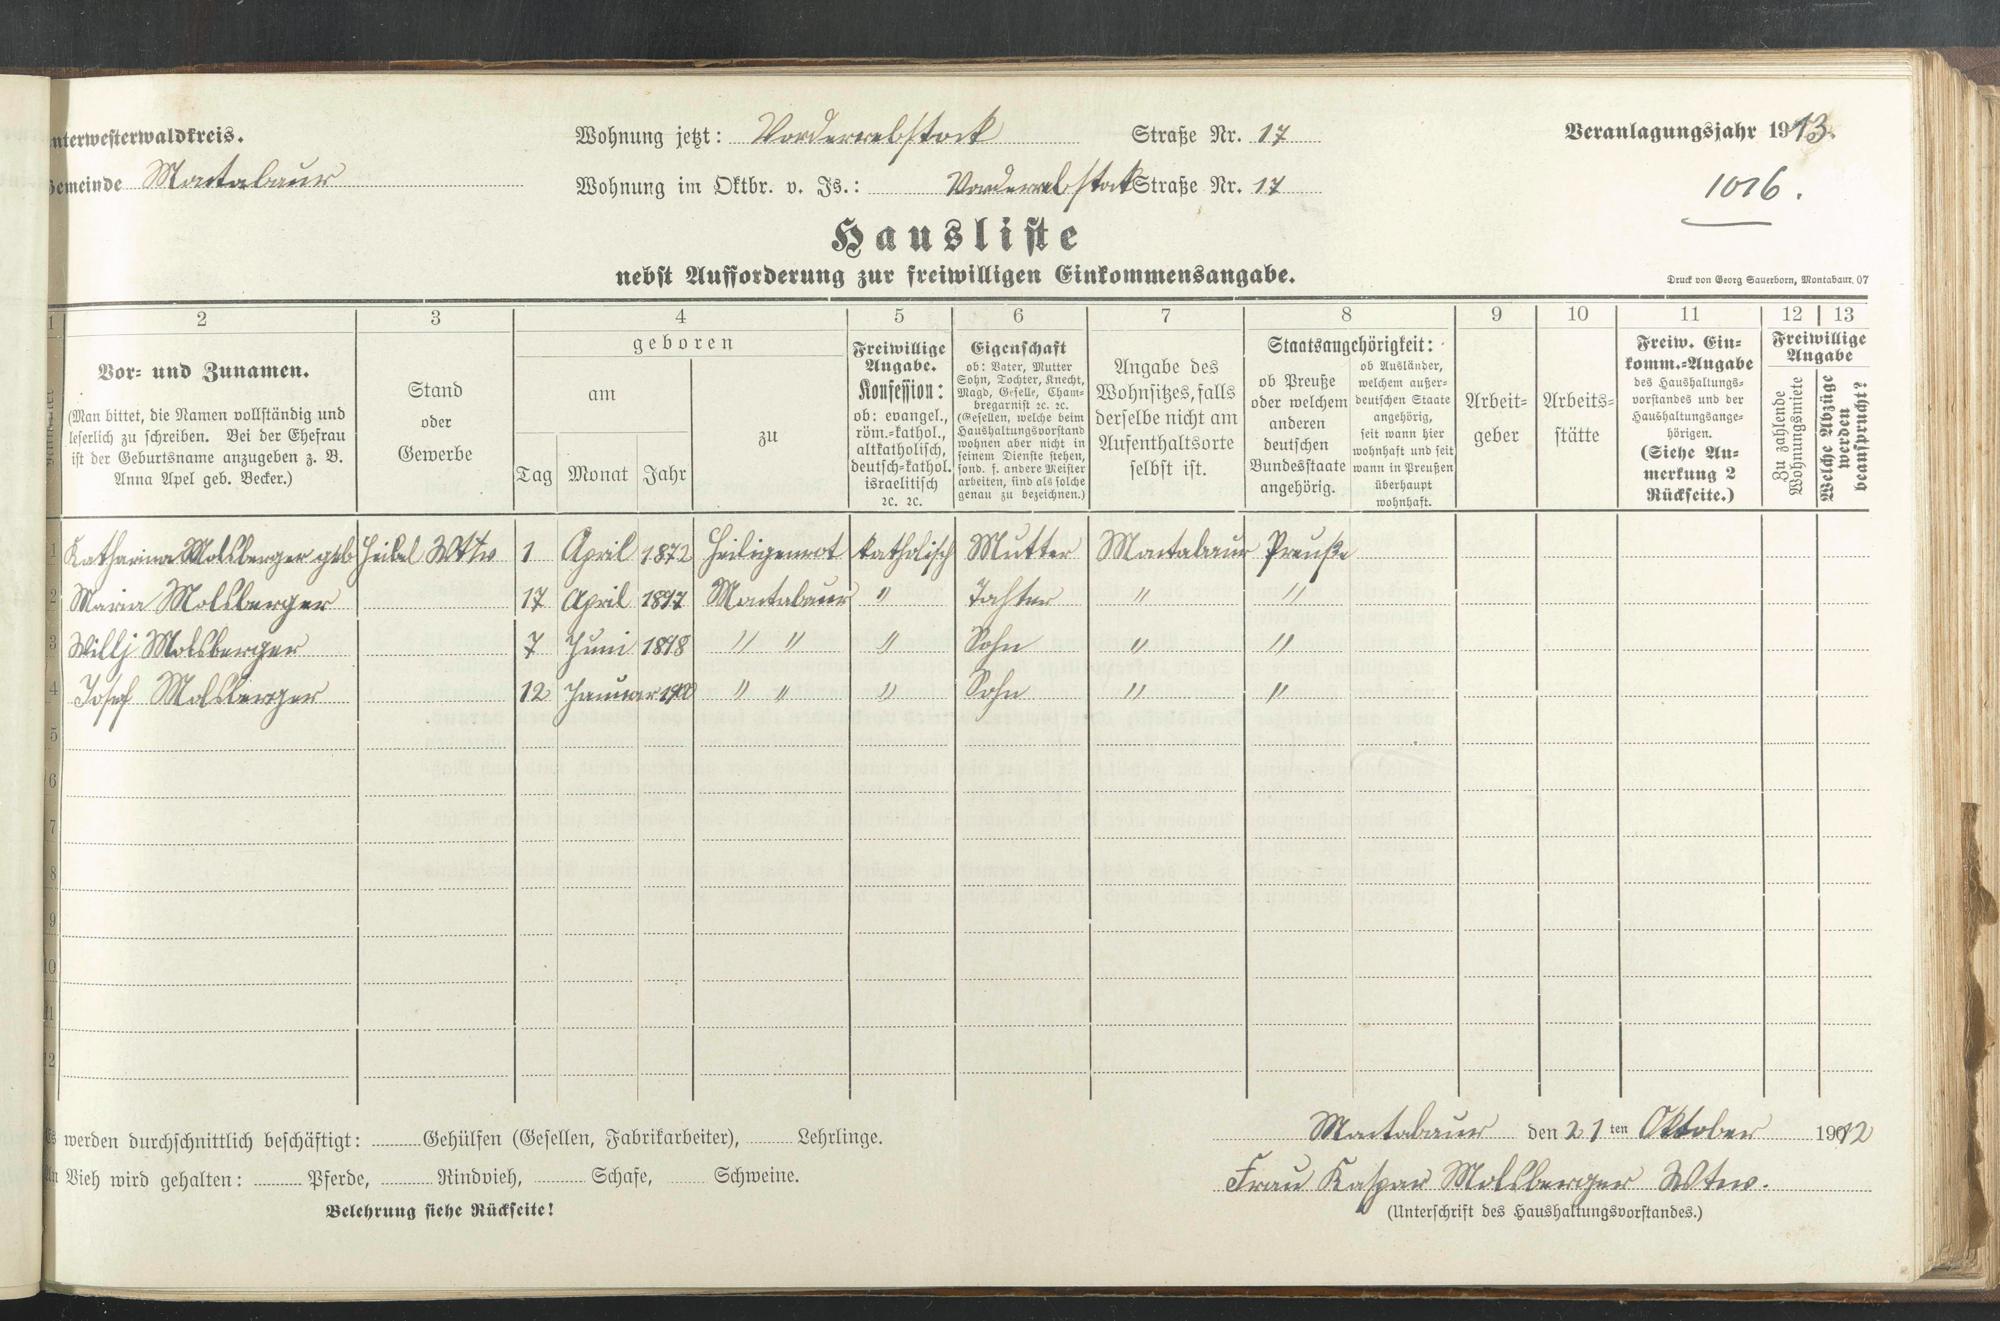 nterwesterwaldkreis.
Wohnung jetzt: Vorderrebstock Straße Nr. 17
Veranlagungsjahr 1913.
Gemeinde Montabaur
Wohnung im Oktbr. v. Js.: Vorderrebstock Straße Nr. 17
1016.
Hausliste
nebst Aufforderung zur freiwilligen Einkommensangabe.
Druck von Georg Sauerborn, Montabaur. 07
1 2 3 4 5 6 7 8 9 10 11 12 13
Vor- und Zunamen.
(Man bittet, die Namen vollständig und
leserlich zu schreiben. Bei der Ehefrau
ist der Geburtsname anzugeben z. B.
Anna Apel geb. Becker.)
Stand
oder
Gewerbe
geboren
am
Tag Monat Jahr
zu
Freiwillige
Angabe.
Konfession:
ob: evangel.,
röm.-kathol.,
altkatholisch,
deutsch-kathol.
israelitisch
ꝛc. ꝛc.
Eigenschaft
ob: Vater, Mutter
Sohn, Tochter, Knecht,
Magd, Geselle, Cham-
bregarnist ꝛc. ꝛc.
(Gesellen, welche beim
Haushaltungsvorstand
wohnen aber nicht in
seinem Dienste stehen,
sond. f. andere Meister
arbeiten, sind als solche
genau zu bezeichnen.)
Angabe des
Wohnsitzes, falls
derselbe nicht am
Aufenthaltsorte
selbst ist.
Staatsangehörigkeit:
ob Preuße
oder welchem
anderen
deutschen
Bundesstaate
angehörig.
ob Ausländer,
welchem außer-
deutschen Staate
angehörig,
seit wann hier
wohnhaft und seit
wann in Preußen
überhaupt
wohnhaft.
Arbeit-
geber
Arbeits-
stätte
Freiw. Ein-
komm.-Angabe
des Haushaltungs-
vorstandes und der
Haushaltungsange-
hörigen.
(Siehe An-
merkung 2
Rückseite.)
Freiwillige
Angabe
Zu zahlende
Wohnungsmiete
Welche Abzüge
werden
beansprucht?
1 Katharina Molsberger geb Heibel Wttw 1 April 1872 Heiligenrot katholisch Mutter Montabaur Preuße
2 Maria Molsberger 17 April 1897 Montabaur " Tochter " "
3 Willj Molsberger 7 Juni 1898 " " " Sohn " "
4 Josef Molsberger 12 Januar 1900 " " " Sohn " "
5
6
7
8
9
10
11
12
Es werden durchschnittlich beschäftigt: Gehülfen (Gesellen, Fabrikarbeiter), Lehrlinge.
Montabaur den 21ten Oktober 1912
An Vieh wird gehalten: Pferde, Rindvieh, Schafe, Schweine.
Frau Kaspar Molsberger Wtw.
Belehrung siehe Rückseite!
(Unterschrift des Haushaltungsvorstandes.)